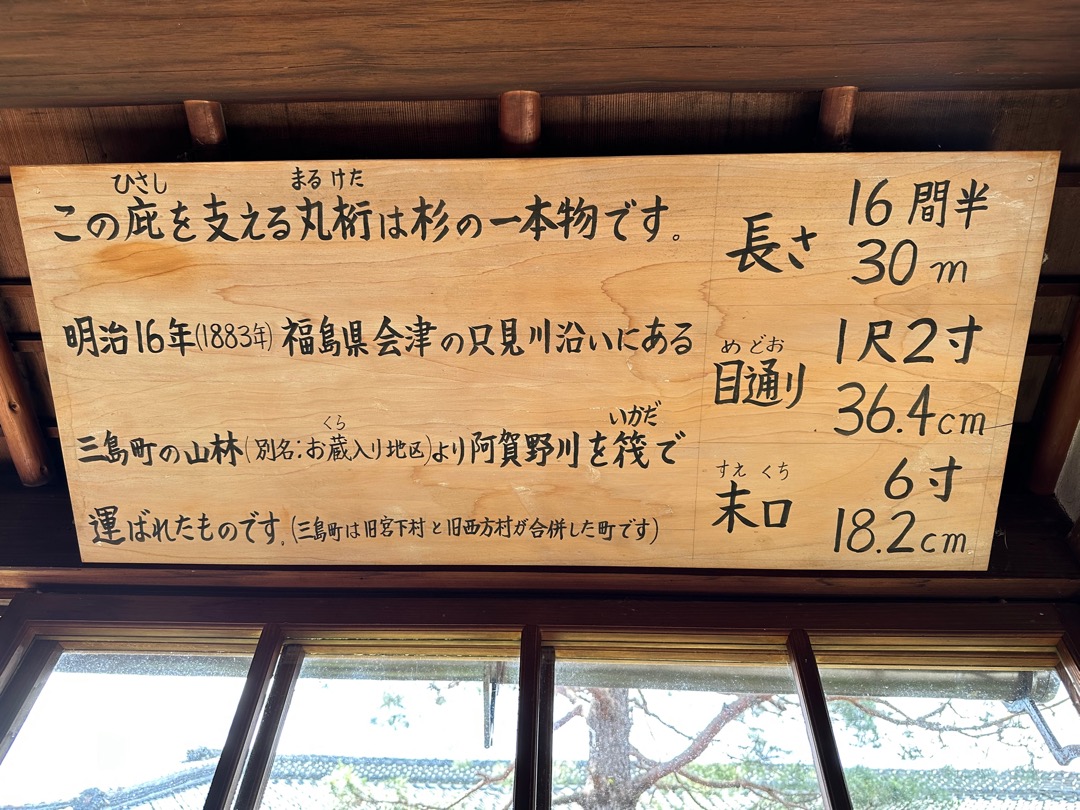 ひさし まるけた
この庇を支える丸桁は杉の一本物です。
明治16年(1883年)福島県会津の只見川沿いにある
くら いかだ
三島町の山林(別名:お蔵入り地区)より阿賀野川を筏で
運ばれたものです。(三島町は旧宮下村と旧西方村が合併した町です)
長さ 16間半
30m
めどお
目通り 1尺2寸
36.4cm
すえ くち
末口 6寸
18.2cm